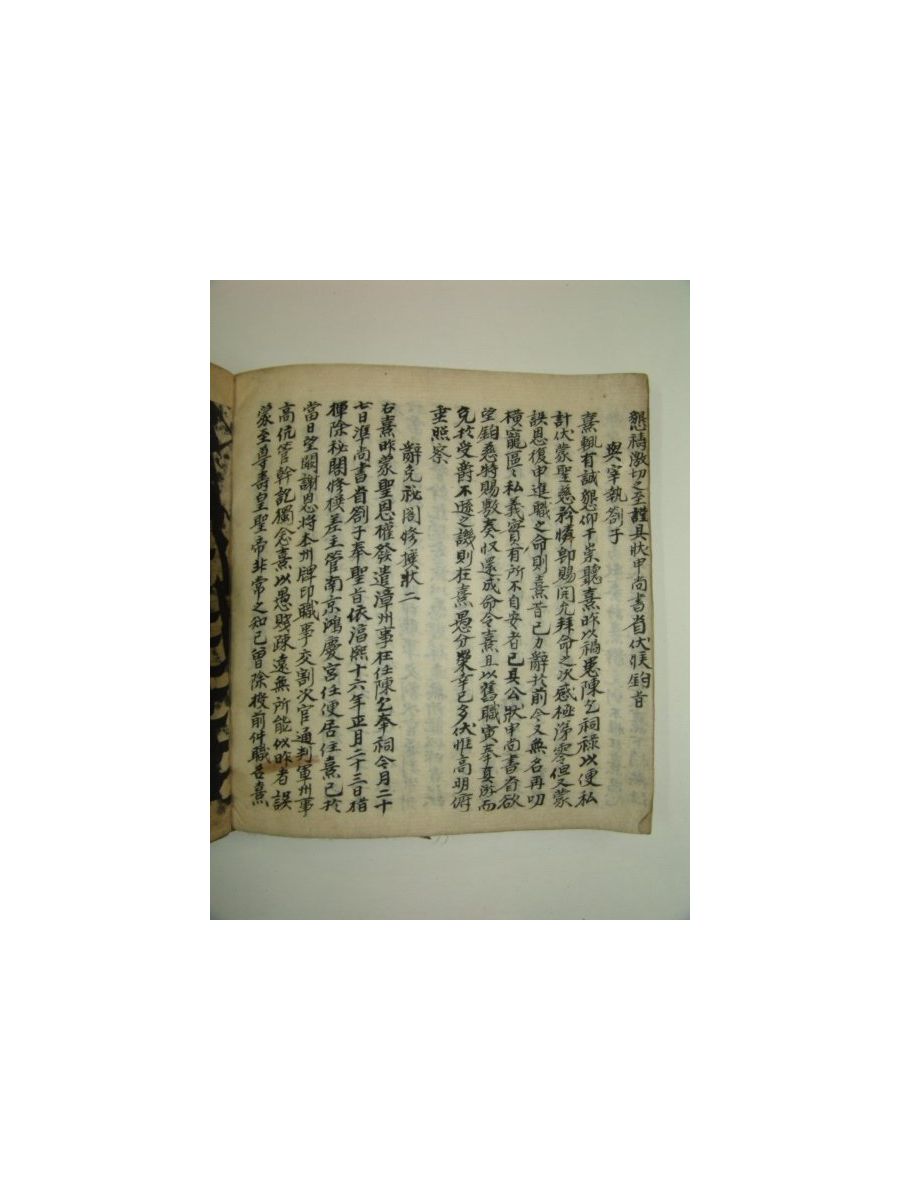 懇禱激切之至謹具狀申尚書省伏候鈞旨
與宰執劄子
熹輒有誠懇仰干崇聽熹昨以禍患陳乞祠祿以便私
計伏蒙聖慈矜憐卽賜開允拜命之次感極涕零但又蒙
誤恩復申進職之命則熹昔已力辭於前今又無名再叨
橫寵區々私義實有所不自安者已具公狀申尚書省欲
望鈞慈特賜敷奏収還成命令熹且以舊職寅奉眞游而
免於受爵不遜之譏則在熹愚分榮幸已多伏惟高明俯
垂照察
辭免祕閣修撰狀二
右熹昨蒙聖恩權發遣漳州事在任陳乞奉祠今月二十
七日準尚書省劄子奉聖旨依淳熙十六年正月二十三日指
揮除秘閣修撰差主管南京鴻慶宮任便居住熹已於
當日望闕謝恩將本州牌印職事交割次官通判軍州事
高伉管幹訖獨念熹以愚賤疎遠無所能似昨者誤
蒙至尊壽皇聖帝非常之知已曾除授前件職名熹